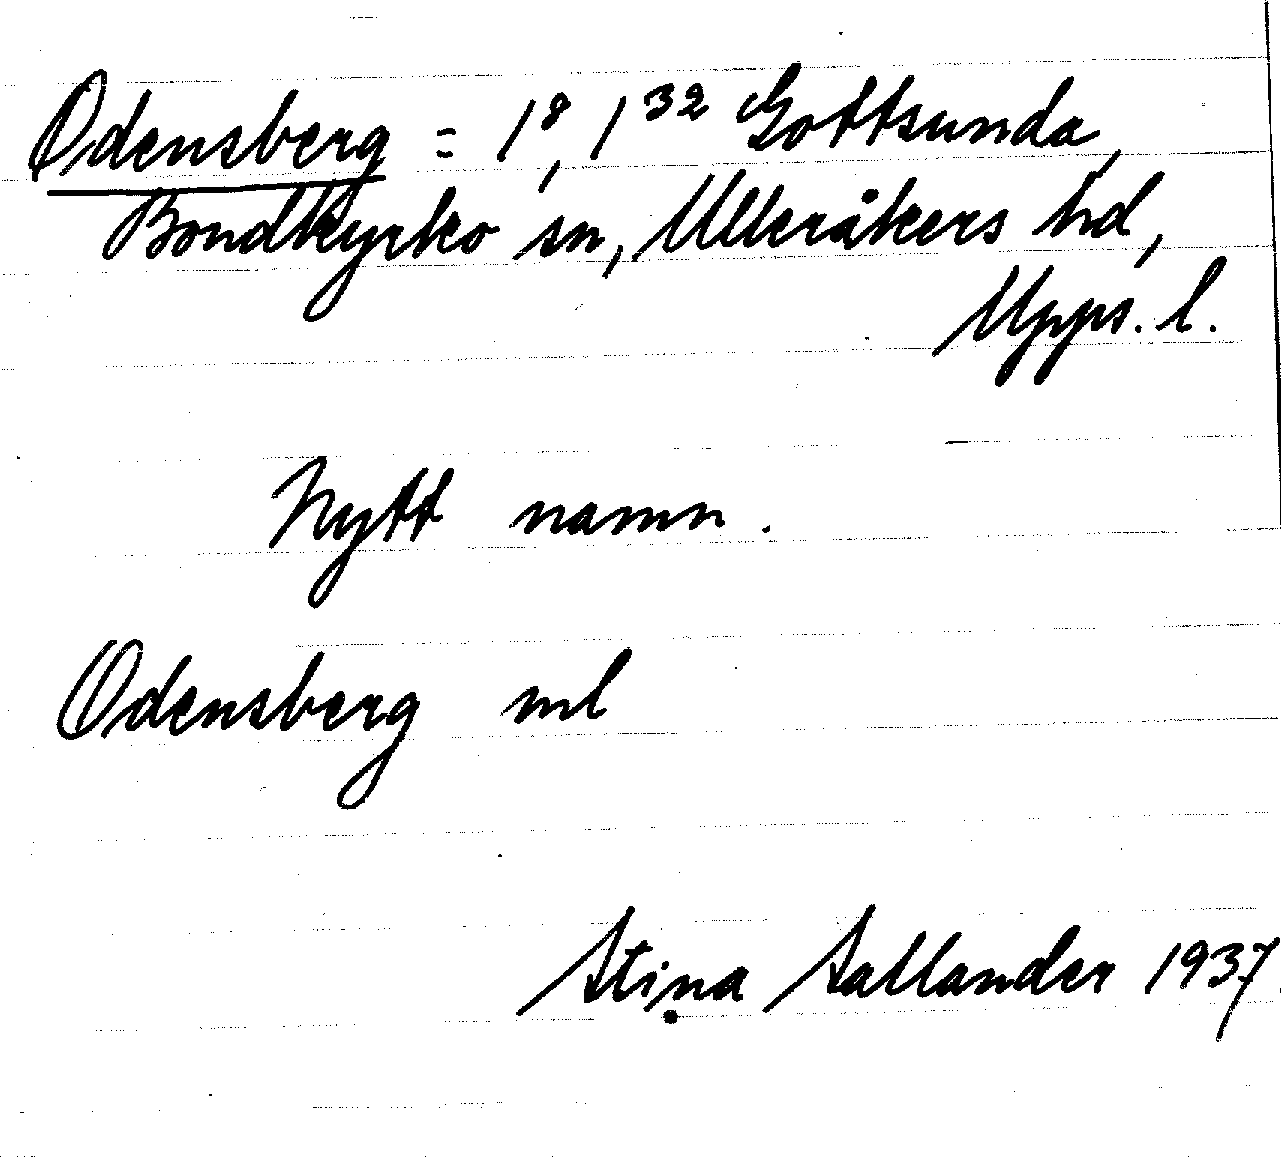 Odensberg = 1⁸, 1³² Gottsunda,
Bondkyrko sn, Ulleråkers hd,
Upps. l.
Nytt namn.
Odensberg ml
Stina Sallander 1937.